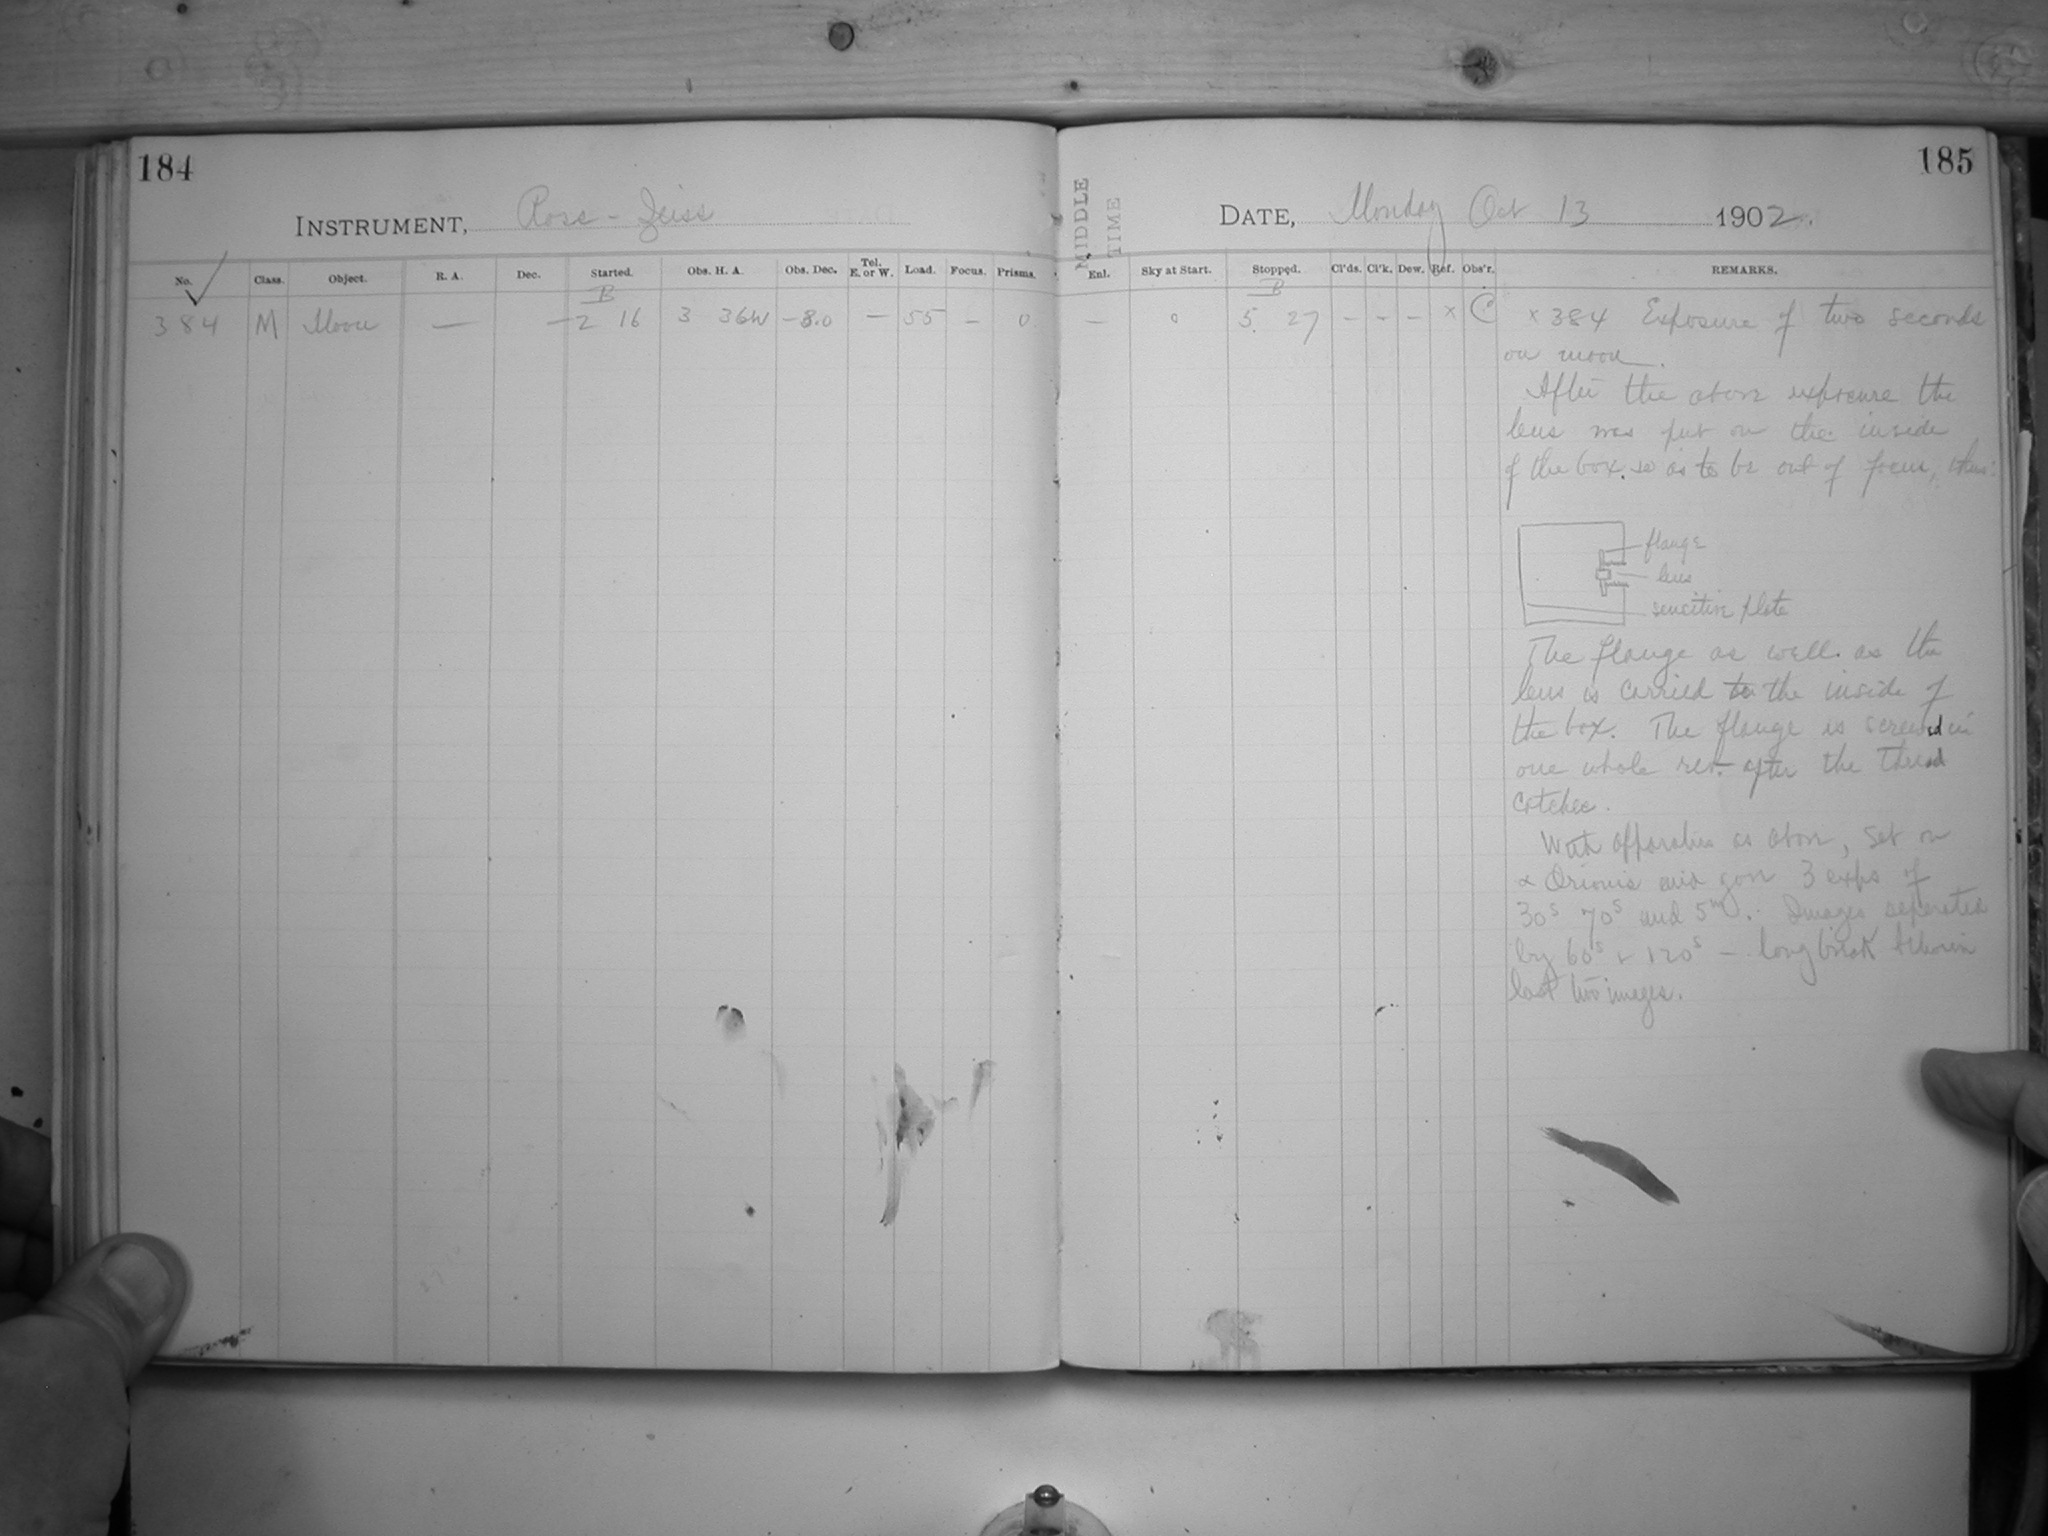 184
INSTRUMENT, Ross-Zeiss
No. Class. Object. R. A. Dec. Started. Obs. H. A. Obs. Dec. Tel. E. or W. Load. Focus. Prisms.
B
384 M Moon — — 2 16 3 36W -8.0 — 55 — 0
185
MIDDLE
TIME
DATE, Monday Oct 13 1902.
Enl. Sky at Start. Stopped. Cl'ds. Cl'k. Dew. Ref. Obs'r. REMARKS.
B
— 0 5. 27 - - - × C × 384 Exposure of two seconds
on moon.
After the above exposure the
lens was put on the inside
of the box so as to be out of focus, thus:
flange
lens
sensitive plate
The flange as well as the
lens is carried to the inside of
the box. The flange is screwed in
one whole rev. after the thread
catches.
With apparatus as above, set on
α Orionis and gave 3 exps of
30s 70s and 5m. Images separated
by 60s & 120s — long break between
last two images.